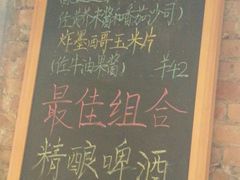 佐芥末酱和番茄沙司)
炸墨西哥玉米片
(佐牛油果酱) ¥42
最佳组合
精酿啤酒